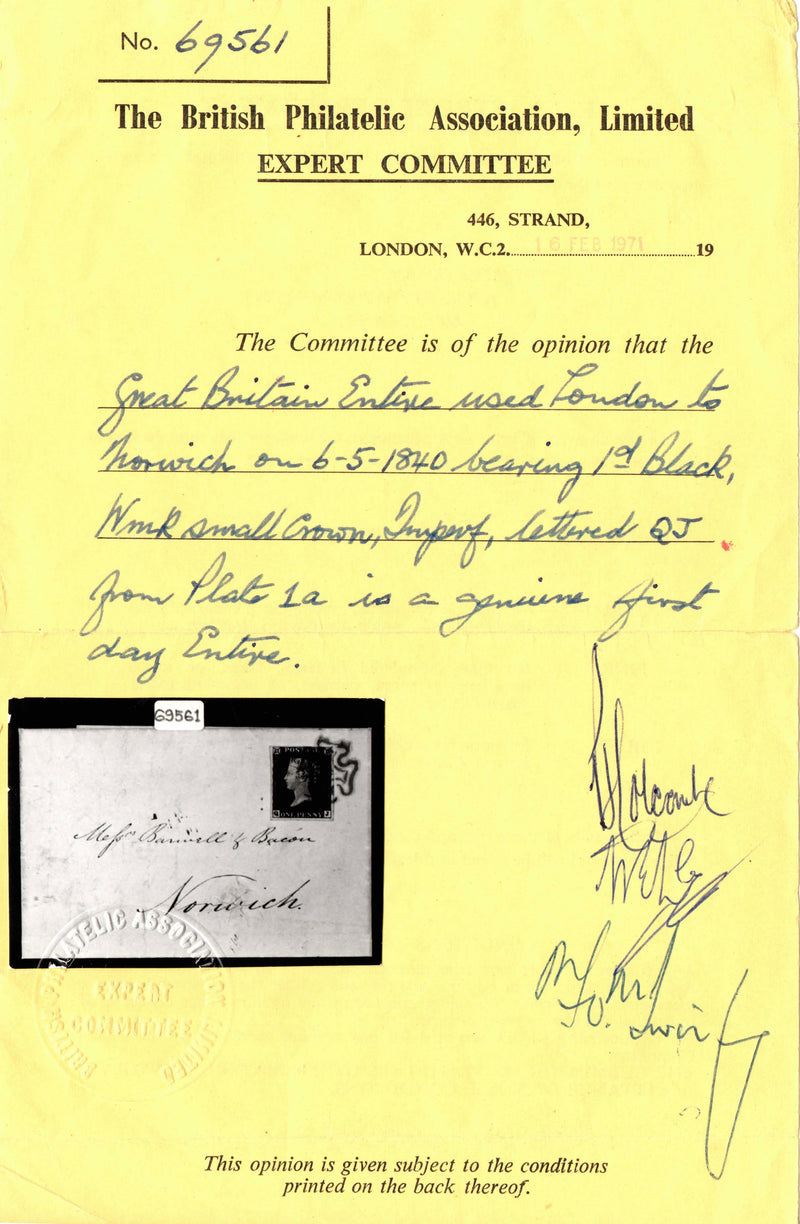 No. 69561
The British Philatelic Association, Limited
EXPERT COMMITTEE
446, STRAND,
LONDON, W.C.2. 16 FEB 1971 19
The Committee is of the opinion that the
Great Britain Entire used London to
Norwich on 6-5-1840 bearing 1d Black,
Wmk small Crown, Imperf, lettered QJ
from Plate 1a is a genuine first
day Entire.
69561
POSTAGE
Q ONE PENNY J
Messrs Barwell & Bacon
Norwich.
PHILATELIC ASSOCIATION LIMITED
EXPERT
COMMITTEE
Holcombe
This opinion is given subject to the conditions
printed on the back thereof.